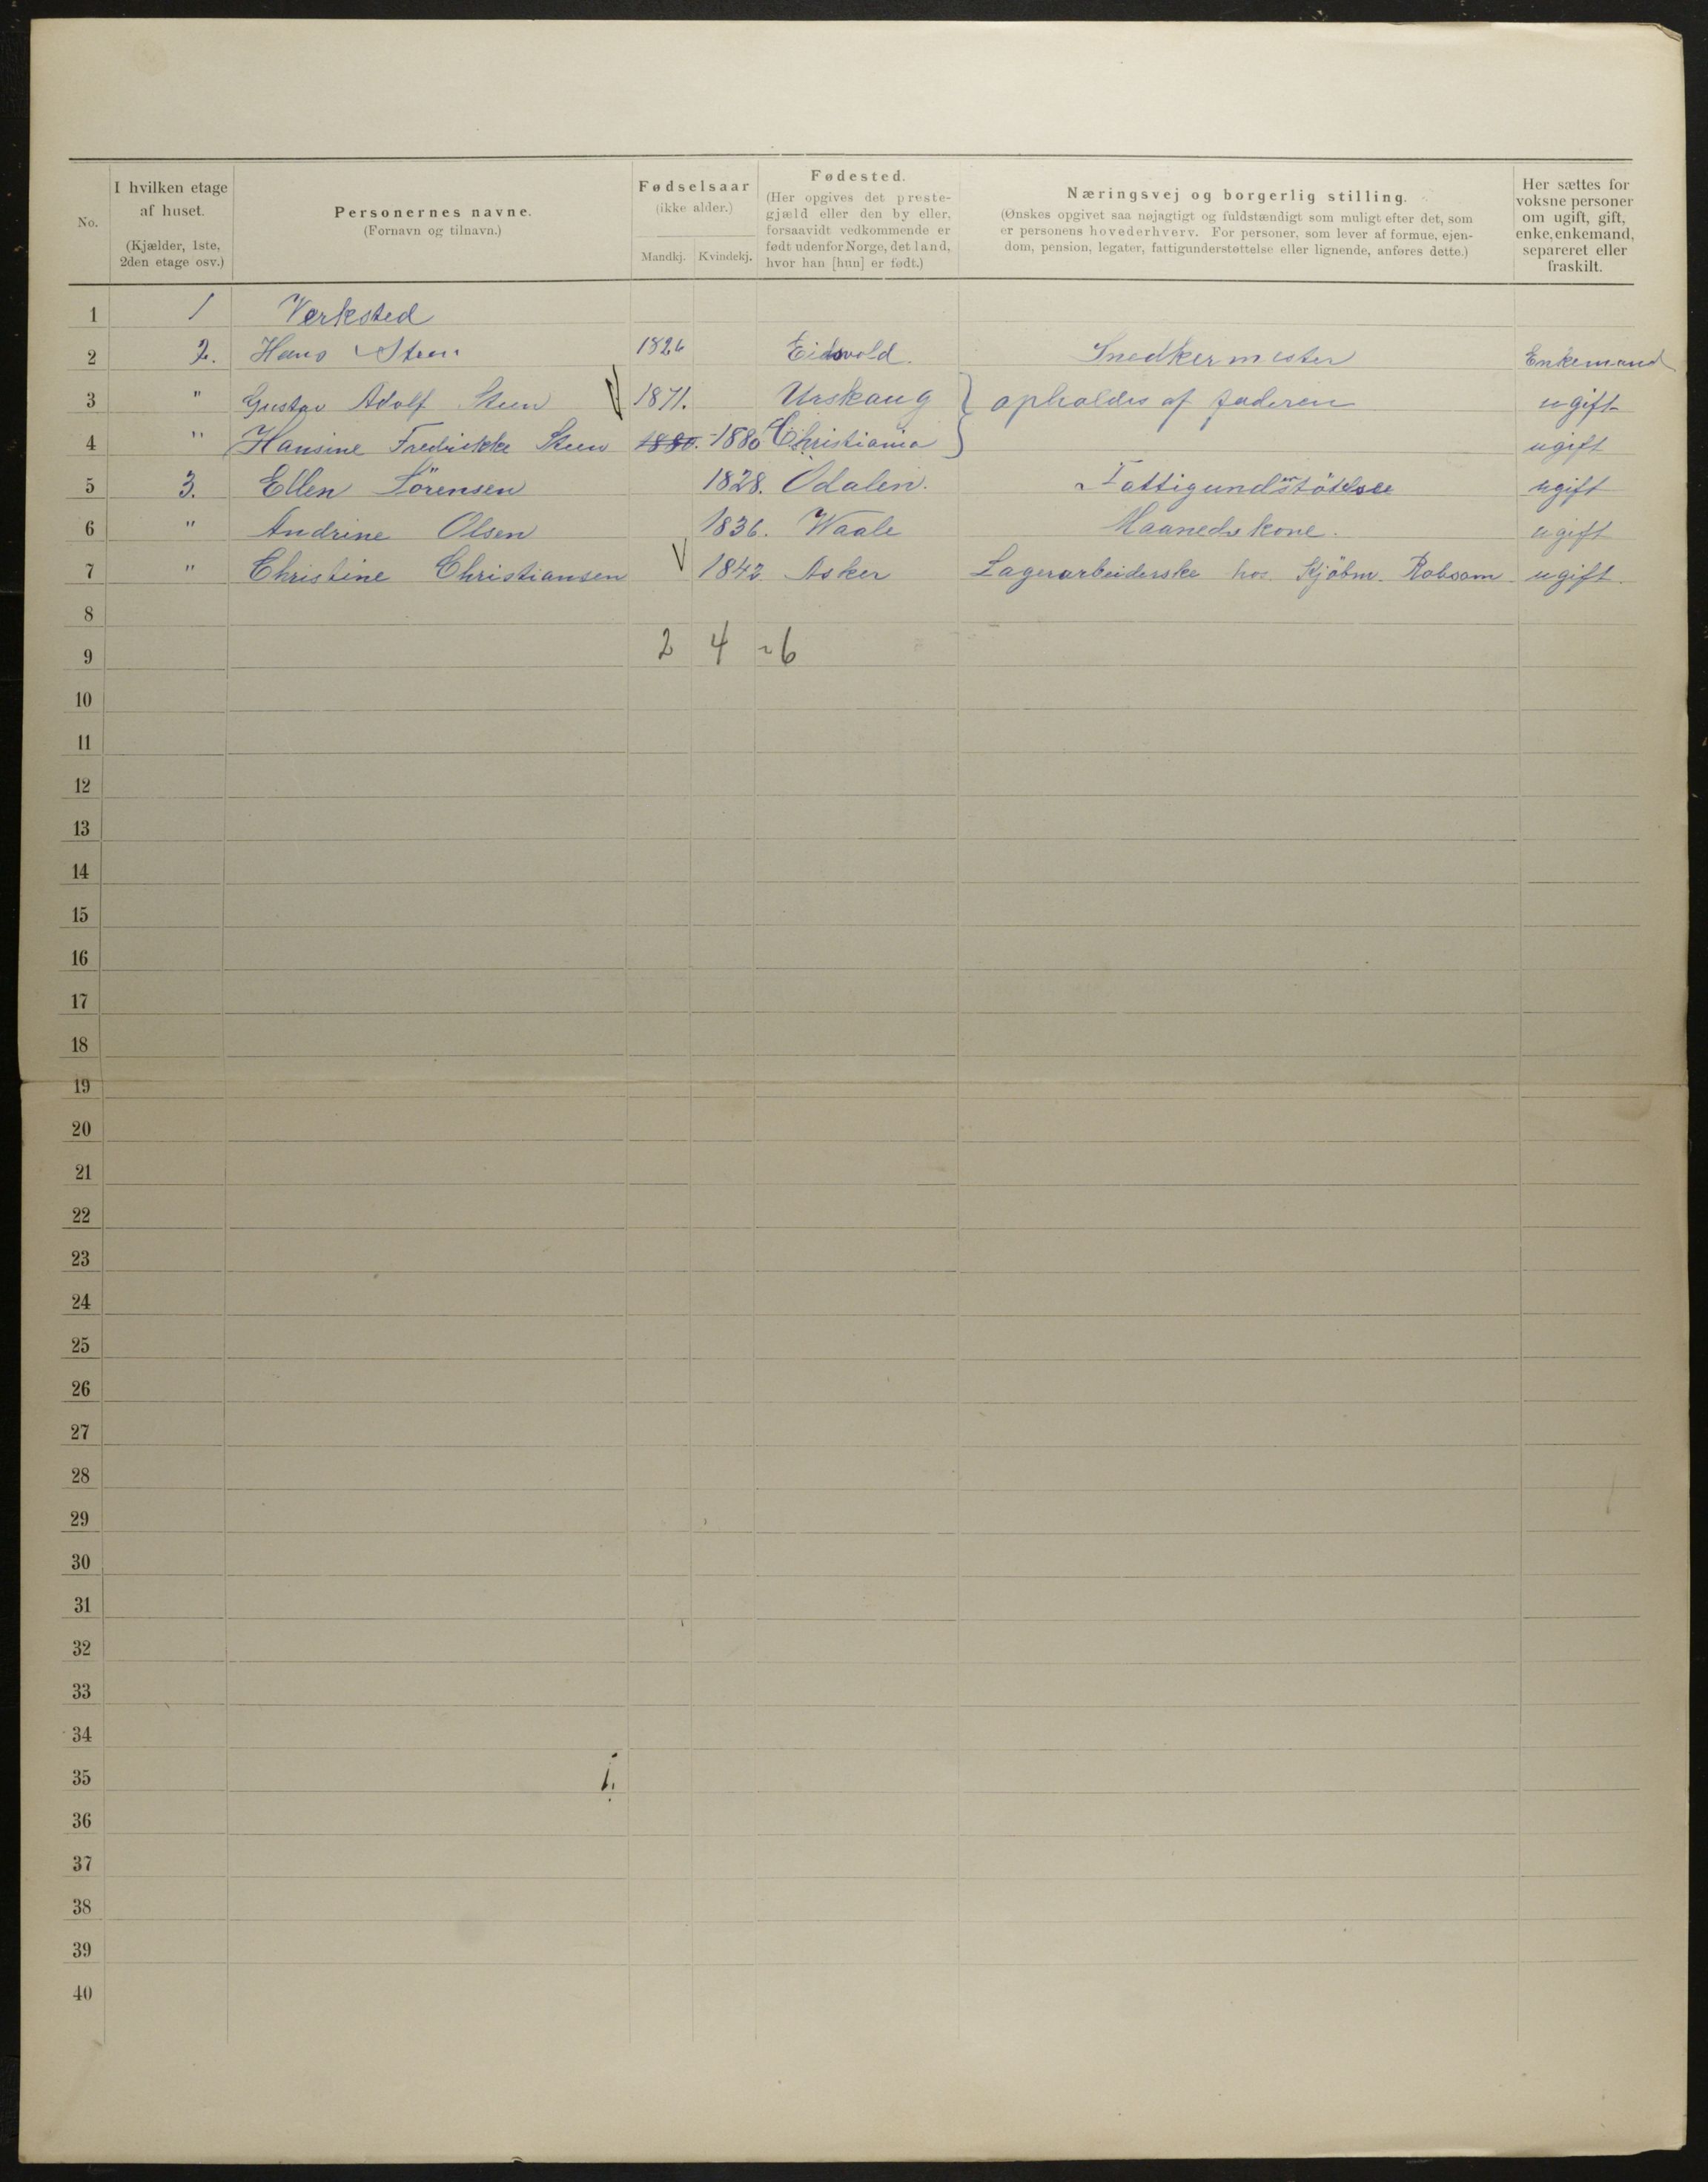 No.
I hvilken etage af huset. (Kjælder, 1ste, 2den etage osv.)
Personernes navne. (Fornavn og tilnavn.)
Fødselsaar (ikke alder.)
Mandkj. Kvindekj.
Fødested. (Her opgives det prestegjæld eller den by eller, forsaavidt vedkommende er født udenfor Norge, det land, hvor han [hun] er født.)
Næringsvej og borgerlig stilling.
(Ønskes opgivet saa nøjagtigt og fuldstændigt som muligt efter det, som er personens hovederhverv. For personer, som lever af formue, ejendom, pension, legater, fattigunderstøttelse eller lignende, anføres dette.)
Her sættes for voksne personer om ugift, gift, enke, enkemand, separeret eller fraskilt.
1 1 Verksted
2 2. Hans Steen 1826 Eidsvold. Snedkermester Enkemand
3 " Gustav Adolf Steen 1871. Urskaug } opholdes af faderen ugift
4 " Hansine Fredrikke Steen 1880. 1880 Christiania } ugift
5 3. Ellen Sörensen 1828. Odalen. Fattigunderstötelse ugift
6 " Andrine Olsen 1836. Waale Maanedskone. ugift
7 " Christine Christiansen 1842 Asker Lagerarbeiderske hos Kjöbm. Robsam ugift.
8
9 2 4 - 6
10
11
12
13
14
15
16
17
18
19
20
21
22
23
24
25
26
27
28
29
30
31
32
33
34
35
36
37
38
39
40